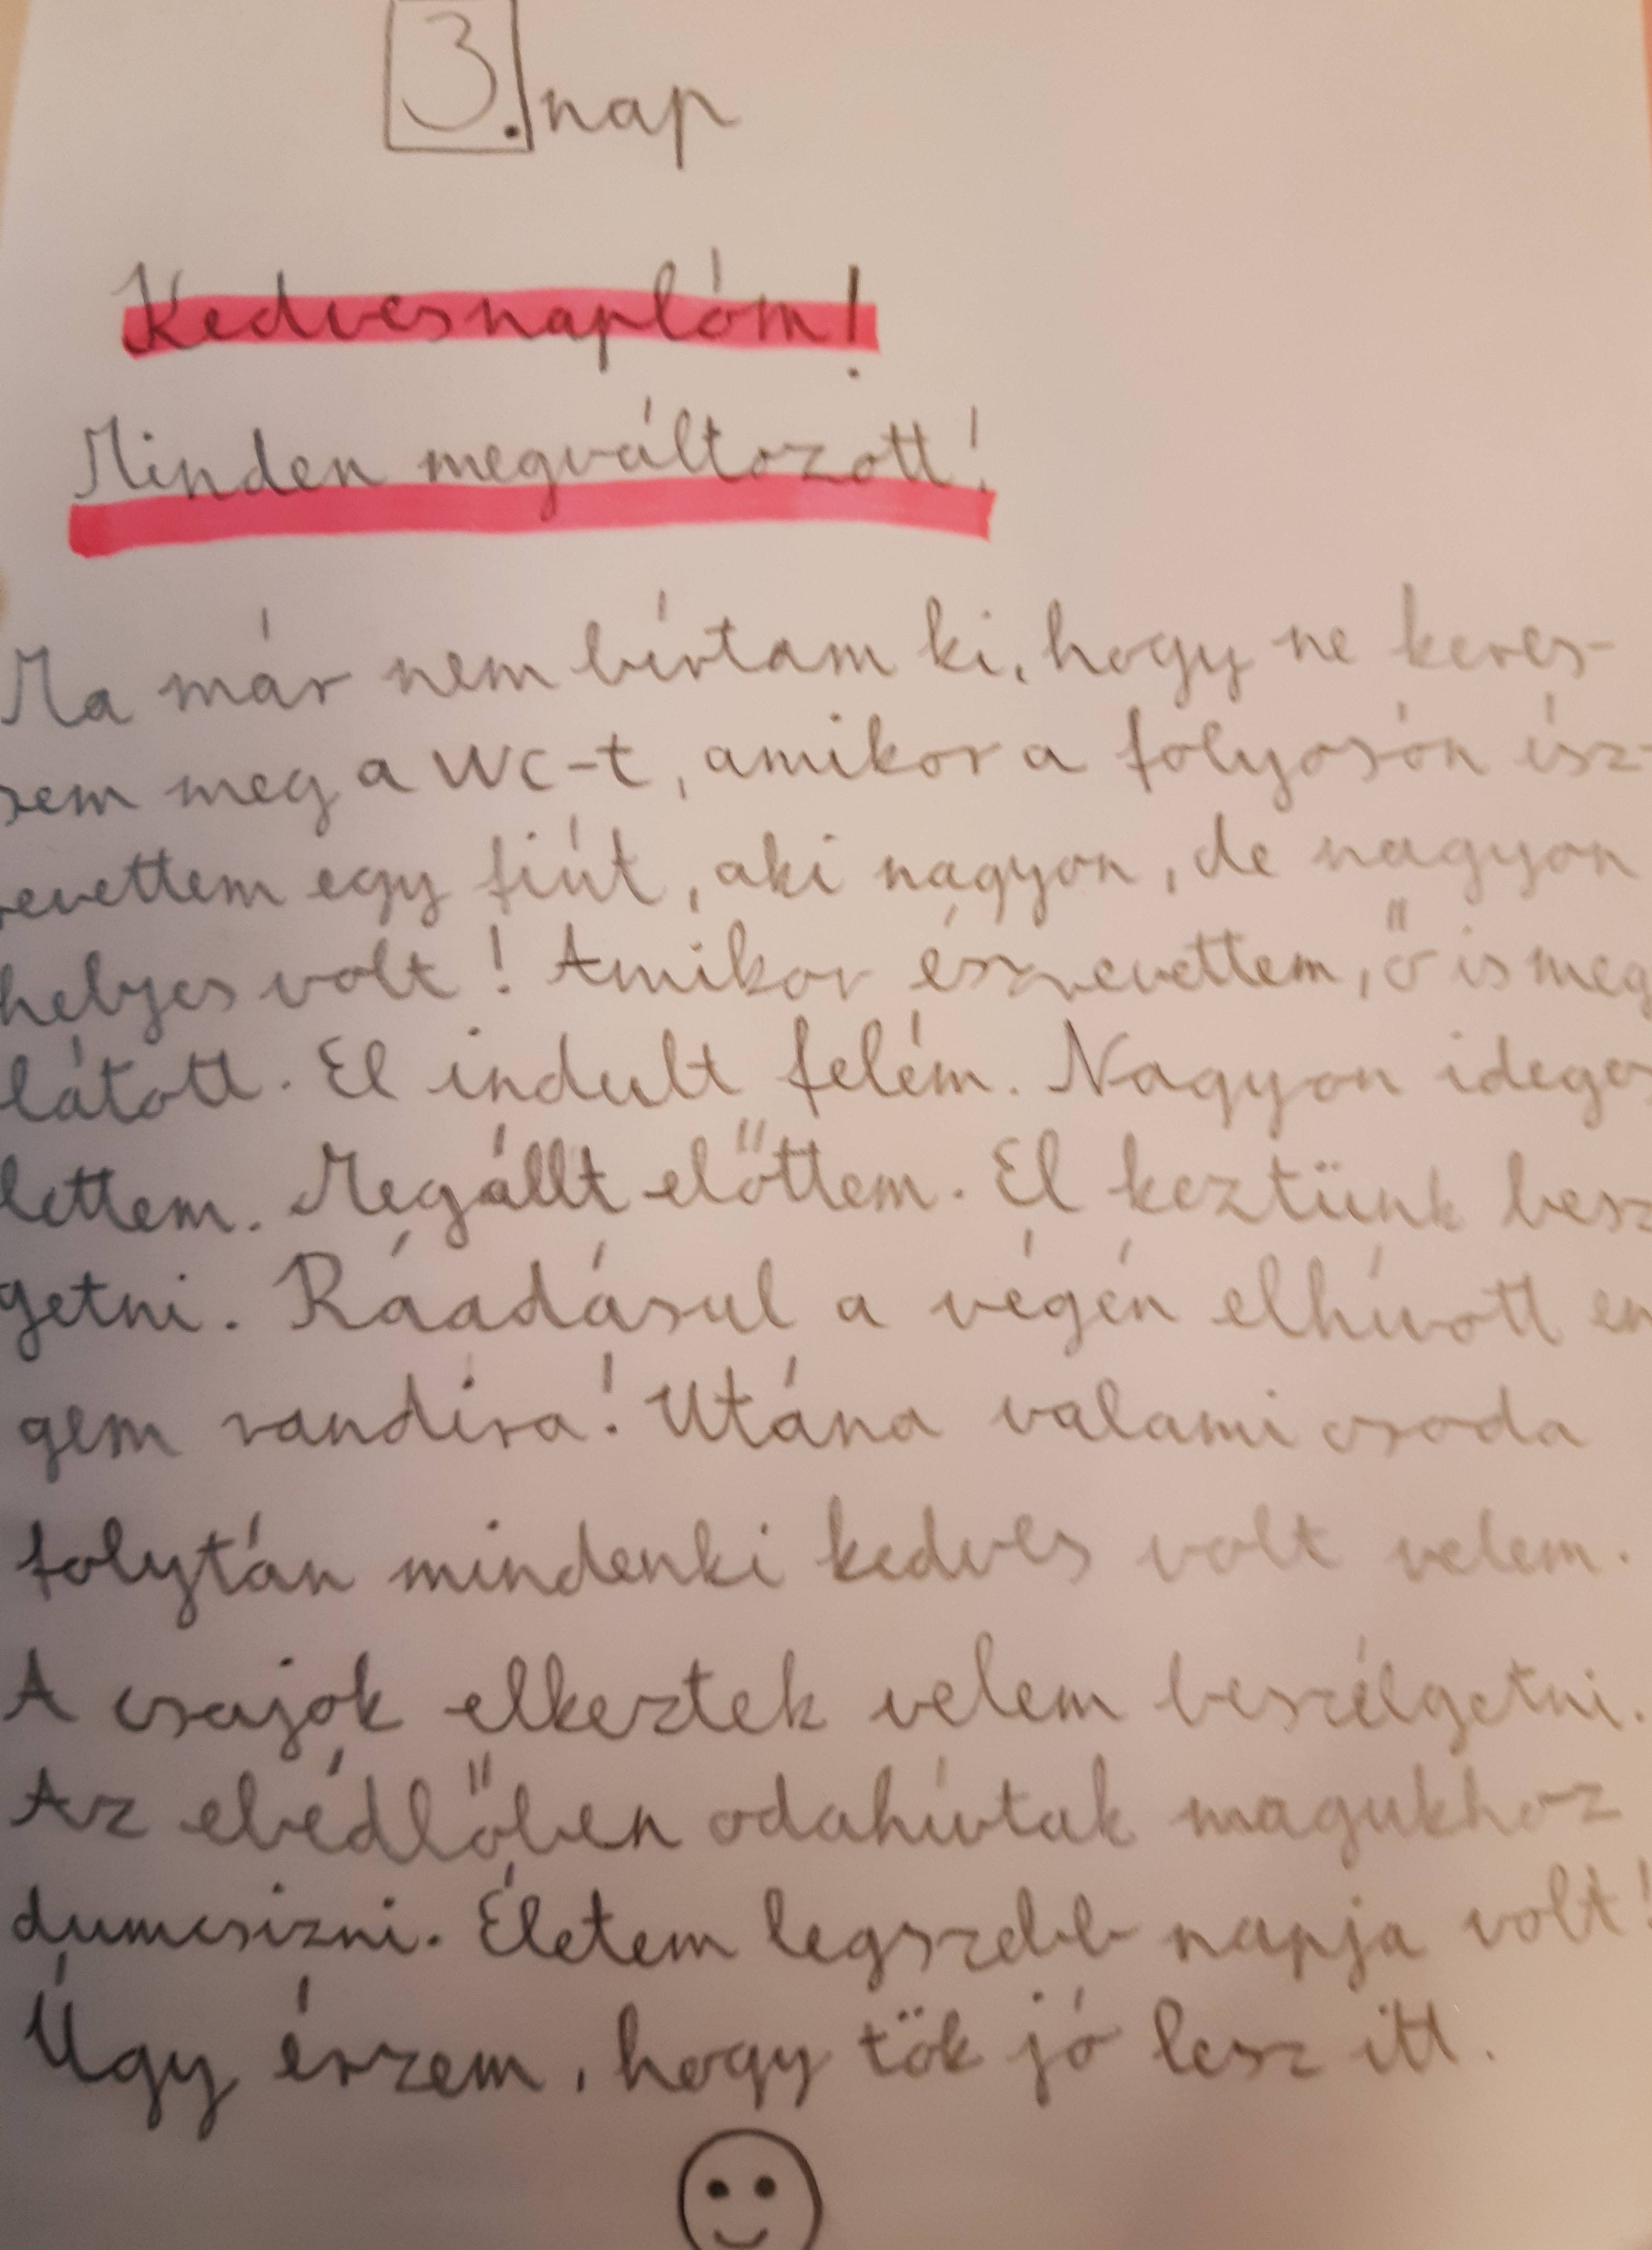 3. nap
Kedvesnaplóm!
Minden megváltozott!
Ma már nem bírtam ki, hogy ne keres-
sem meg a WC-t, amikor a folyosón ész-
revettem egy fiút, aki nagyon, de nagyon
helyes volt! Amikor észrevettem, ő is meg
látott. El indult felém. Nagyon ideges
lettem. Megállt előttem. El keztünk besz
getni. Ráadásul a végén elhívott en
gem randira! Utána valami csoda
folytán mindenki kedves volt velem.
A csajok elkeztek velem beszélgetni.
Az ebédlőben odahívtak magukhoz
dumcsizni. Életem legszebb napja volt!
Úgy érzem, hogy tök jó lesz itt.